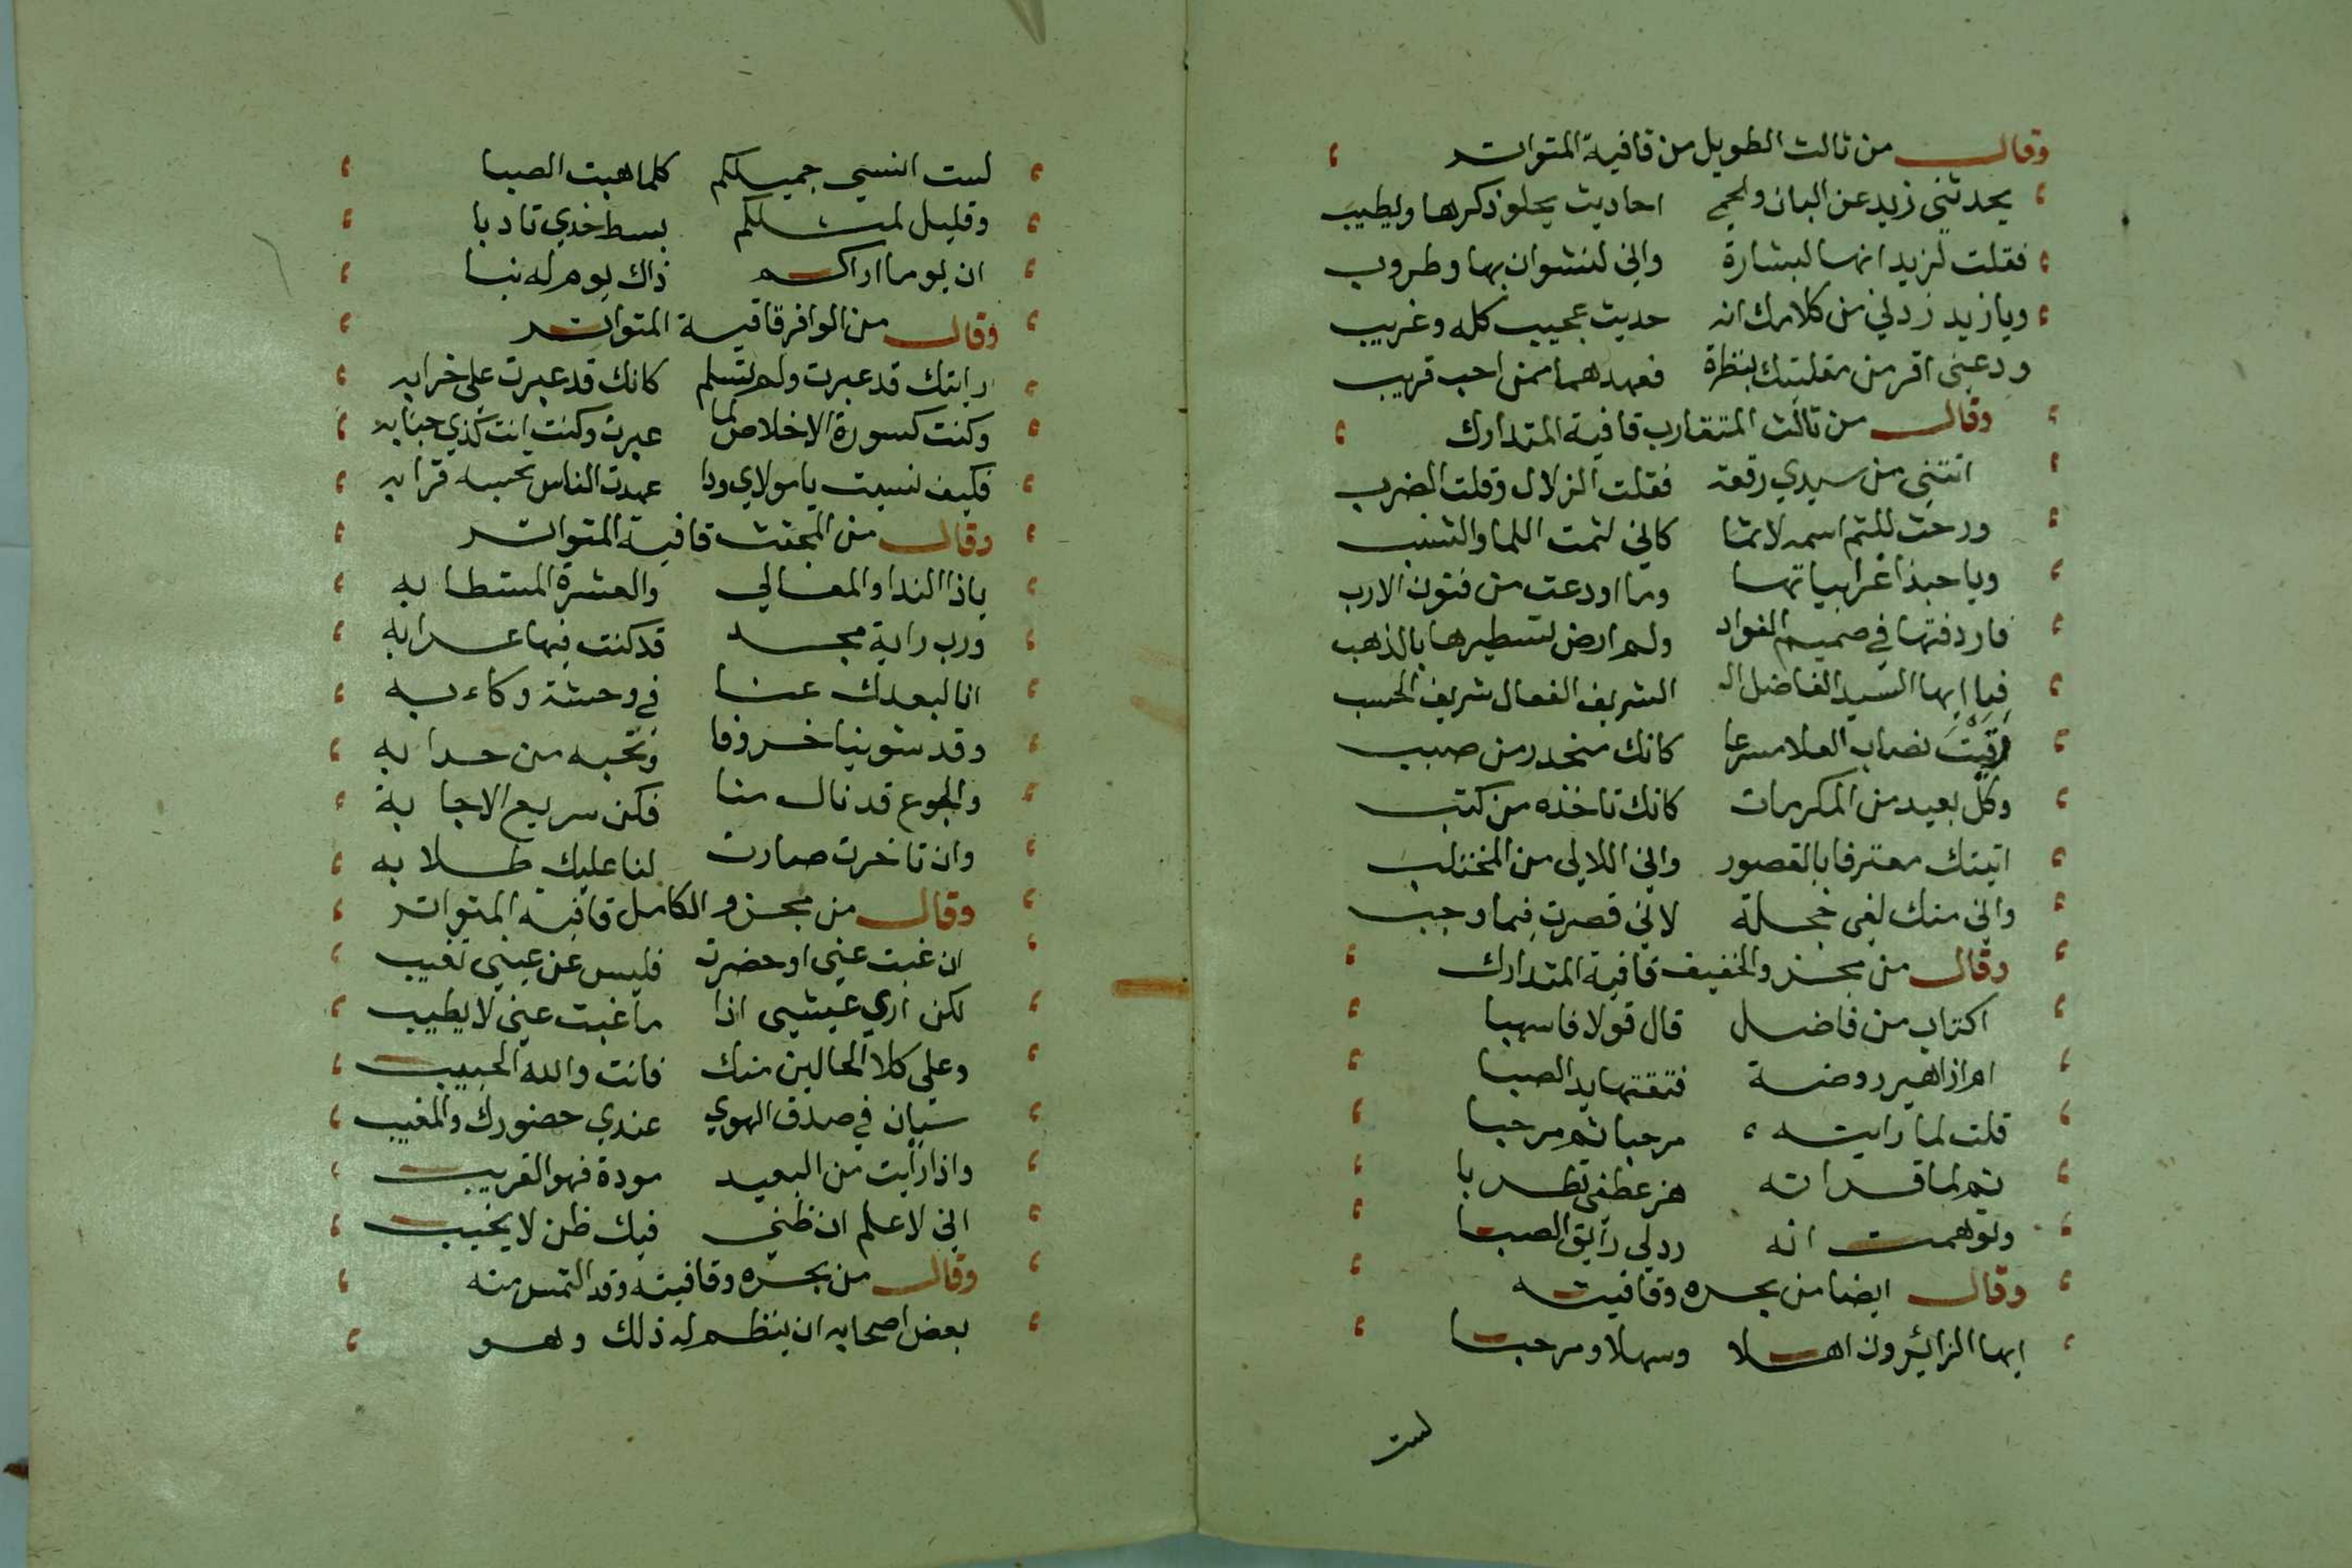 وقال من ثالث الطويل من قافية المتواتر
يحدثني زيد عن البان والحمى احاديث يحلو ذكرها ويطيب
فقلت لزيد انها لبشارة واني لنشوان بها وطروب
ويا زيد زدني من كلامك انه حديث عجيب كله وغريب
ودعني اقر من مقلتيك بنظرة فعهدهما ممن احب قريب
وقال من ثالث المتقارب قافية المتدارك
اتتني من سيدي رقعة فقلت الزلال وقلت الضرب
ورحت للثم اسمه لاثما كاني لثمت اللما والشنب
ويا حبذا غرابياتها وما اودعت من فنون الارب
فاردفتها في صميم الفواد ولم ارض لتسطيرها بالذهب
فيا ايها السيد الفاضل الـ الشريف الفعال شريف الحسب
رقيت نصاب العلا مسرعا كانك منحدر من صبب
وكل بعيد من المكرمات كانك تاخذه من كثب
اتيتك معترفا بالقصور واني اللالى من المخشلب
واني منك لفى خجلة لاني قصرت فيما وجب
وقال من مجزو الخفيف قافية المتدارك
اكتاب من فاضل قال قولا فاسهبا
ام ازاهير روضة فتقتها يد الصبا
قلت لما رايته مرحبا ثم مرحبا
ثم لما قراته هز عطفى تطربا
وتوهمت انه رد لي رايق الصبا
وقال ايضا من بحره وقافيته
ايها الزائرون اهلا وسهلا ومرحبا
لست
لست انسي جميلكم كلما هبت الصبا
وقليل لمثلكم بسط خدي تادبا
ان يوما اراكم ذاك يوم له نبا
وقال من الوافر قافية المتواتر
رايتك قد عبرت ولم تسلم كانك قد عبرت علي خرابه
وكنت كسورة الاخلاص لما عبرت وكنت انت كذي جنابه
فكيف نسيت يا مولاي ودا عهدت الناس تحسبه قرابه
وقال من المجتث قافية المتواتر
ياذا الندا والمعالي والعشرة المستطابه
ورب راية مجد قد كنت فيها عرابه
انا لبعدك عنا في وحشة وكاءبه
وقد شوينا خروفا ونحبه من حدابه
والجوع قد نال منا فكن سريع الاجابة
وان تاخرت صارت لنا عليك طلابه
وقال من مجزو الكامل قافية المتواتر
ان غبت عني او حضرت فليس عن عيني تغيب
لكن اري عيشى اذا ما غبت عني لا يطيب
وعلي كلا الحالين منك فانت والله الحبيب
سيان في صدق الهوي عندي حضورك والمغيب
واذا رايت من البعيد مودة فهو القريب
اني لاعلم ان ظني فيك ظن لا يخيب
وقال من بحره وقافيته وقد التمس منه
بعض اصحابه ان ينظم له ذلك وهو